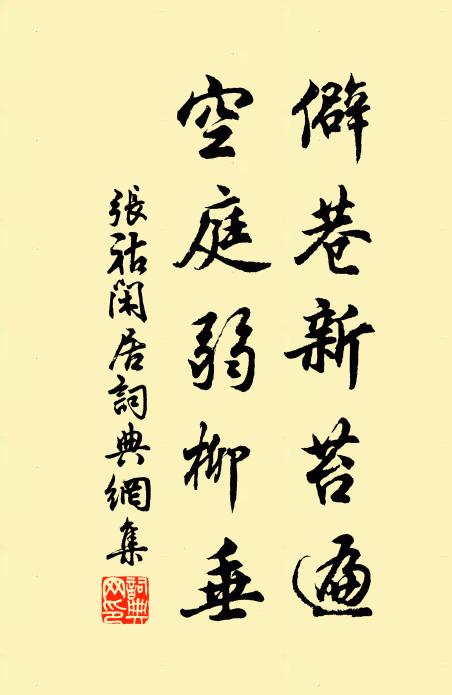 僻巷新苔遍
空庭弱柳垂
張祜閑居詞典網集
詞典网印